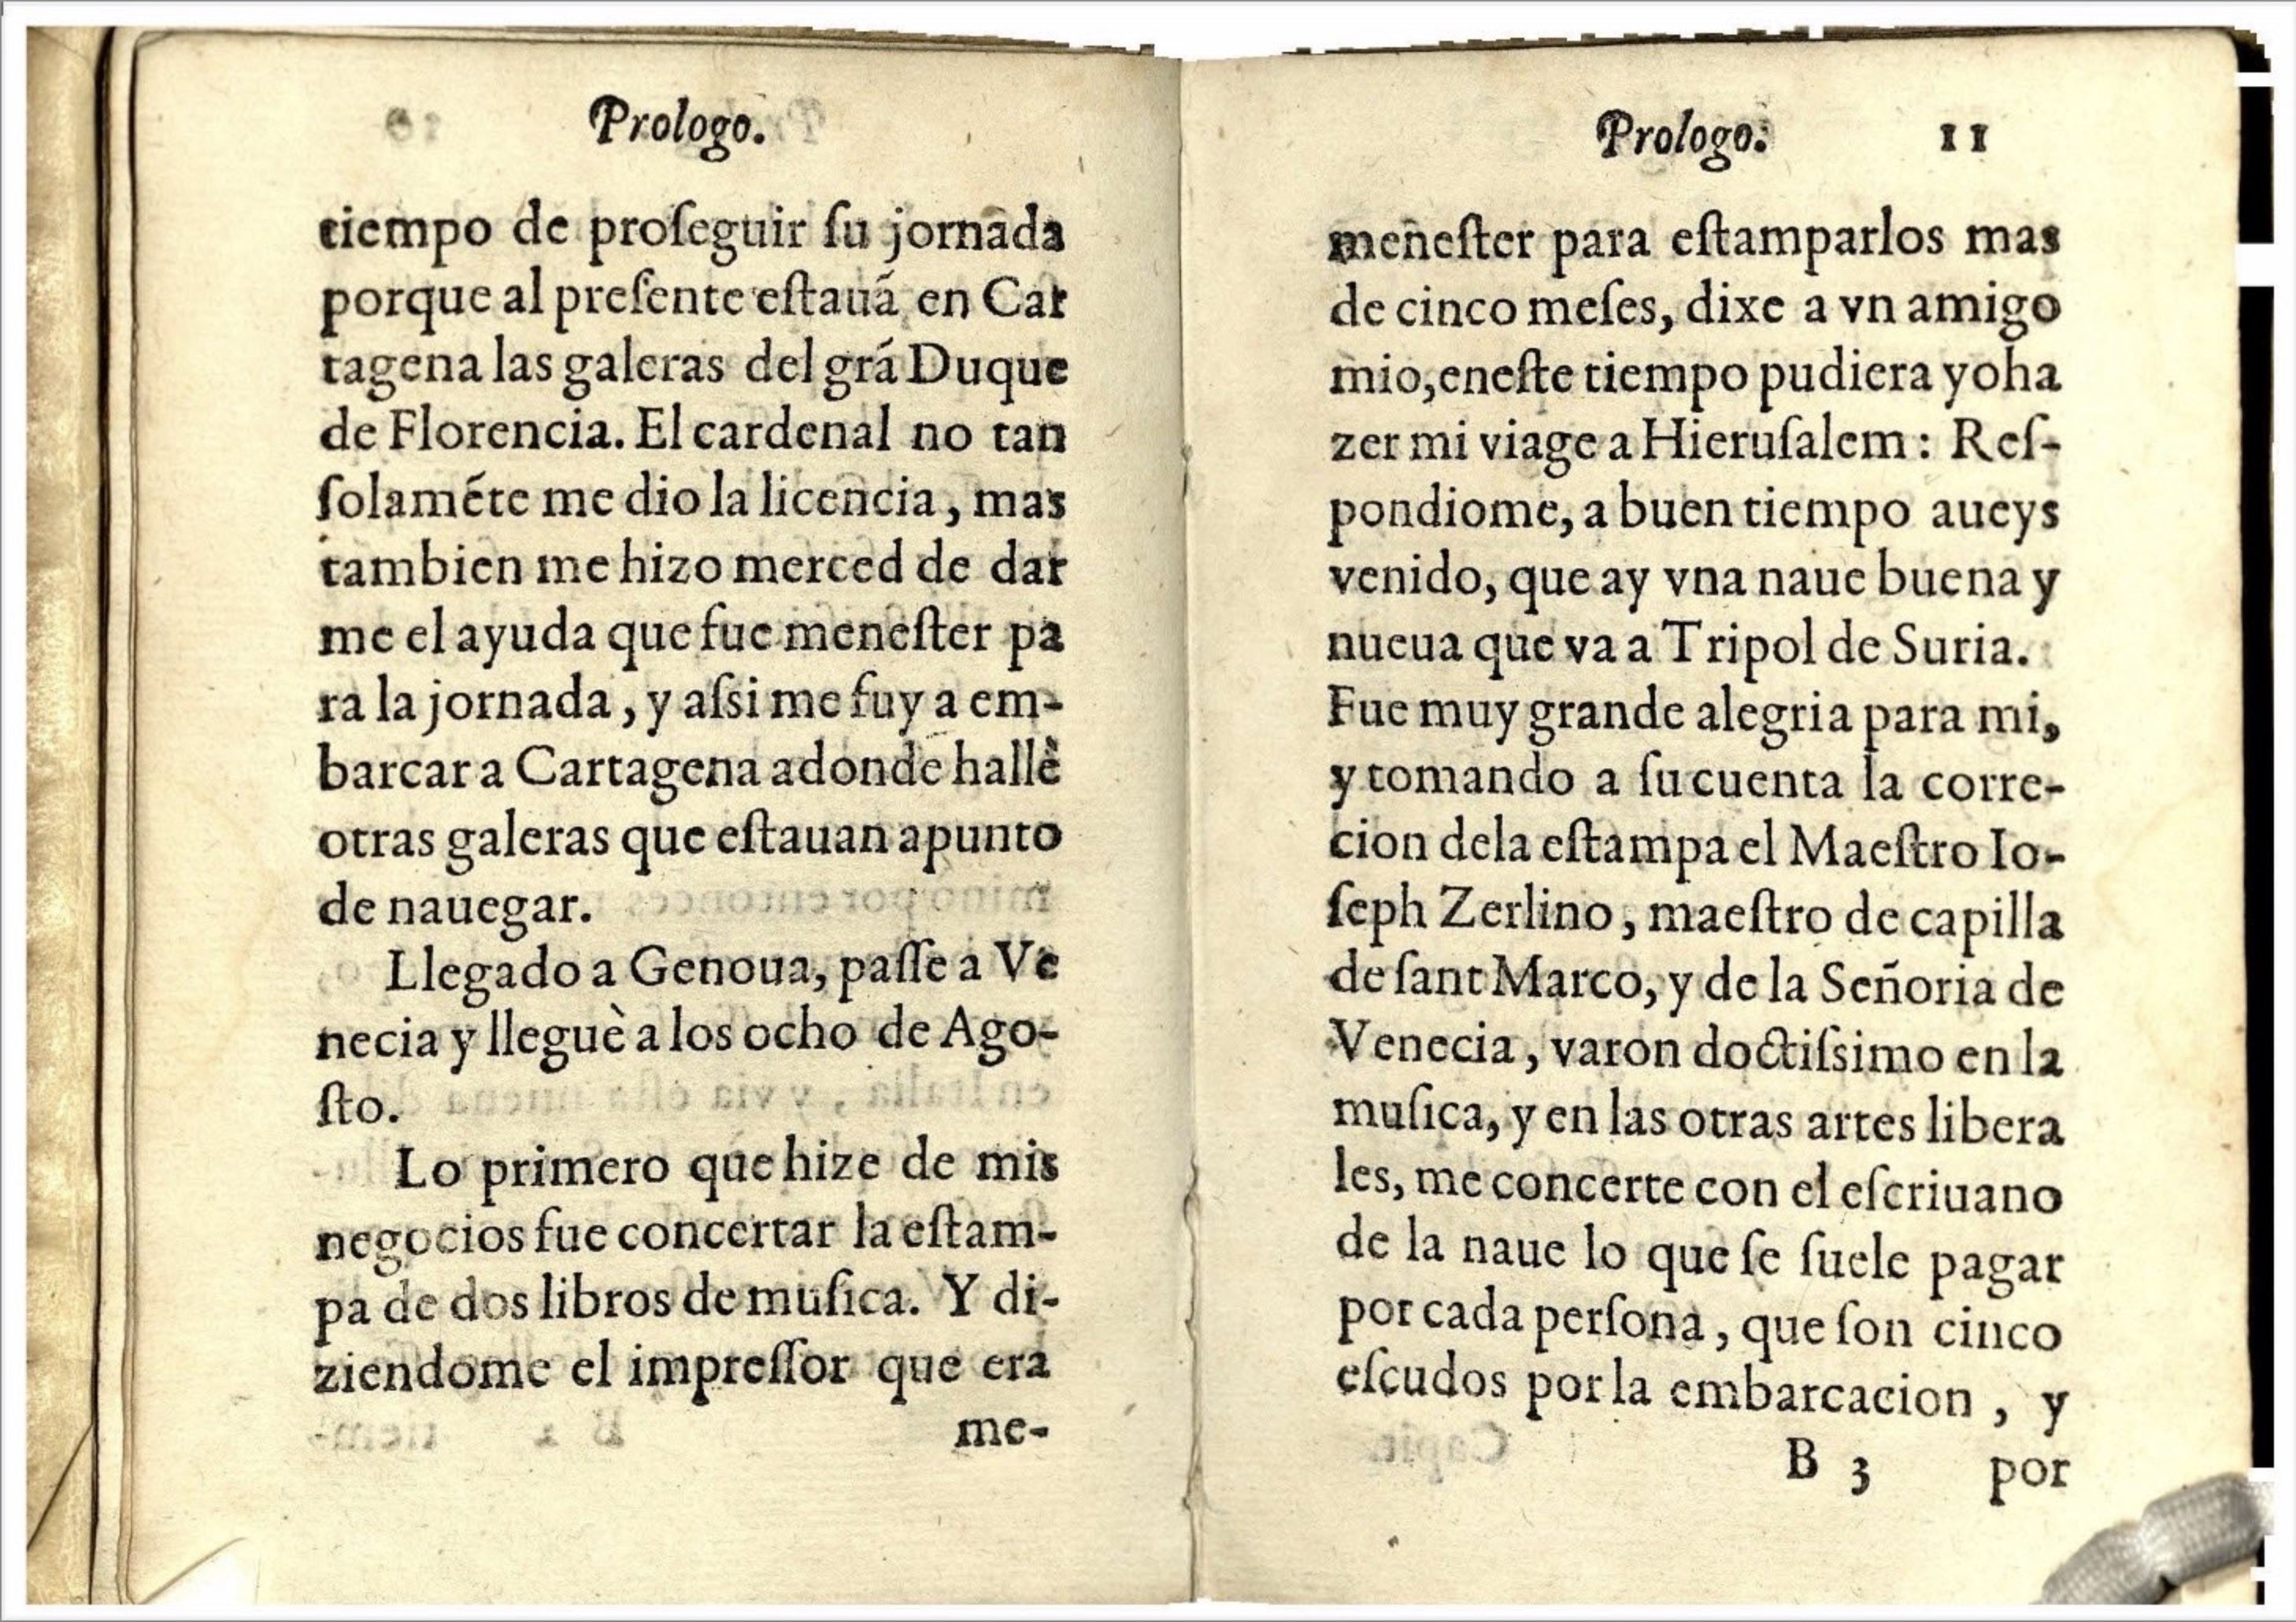 Prologo.
tiempo de proſeguir ſu jornada
porque al preſente eſtauá en Car
tagena las galeras del grá Duque
de Florencia. El cardenal no tan
ſolaméte me dio la licencia, mas
tambien me hizo merced de dar
me el ayuda que fue meneſter pa
ra la jornada, y aſsi me fuy a em-
barcar a Cartagena adonde hallè
otras galeras que eſtauan apunto
de nauegar.
Llegado a Genoua, paſſe a Ve
necia y lleguè a los ocho de Ago-
ſto.
Lo primero que hize de mis
negocios fue concertar la eſtam-
pa de dos libros de muſica. Y di-
ziendome el impreſſor que era
me-
Prologo. 11
meneſter para eſtamparlos mas
de cinco meſes, dixe a vn amigo
mio, eneſte tiempo pudiera yo ha
zer mi viage a Hieruſalem: Reſ-
pondiome, a buen tiempo aueys
venido, que ay vna naue buena y
nueua que va a Tripol de Suria.
Fue muy grande alegria para mi,
y tomando a ſu cuenta la corre-
cion dela eſtampa el Maeſtro Io-
ſeph Zerlino, maeſtro de capilla
de ſant Marco, y de la Señoria de
Venecia, varon doctiſsimo en la
muſica, y en las otras artes libera
les, me concerte con el eſcriuano
de la naue lo que ſe ſuele pagar
por cada perſona, que ſon cinco
eſcudos por la embarcacion, y
B 3 por